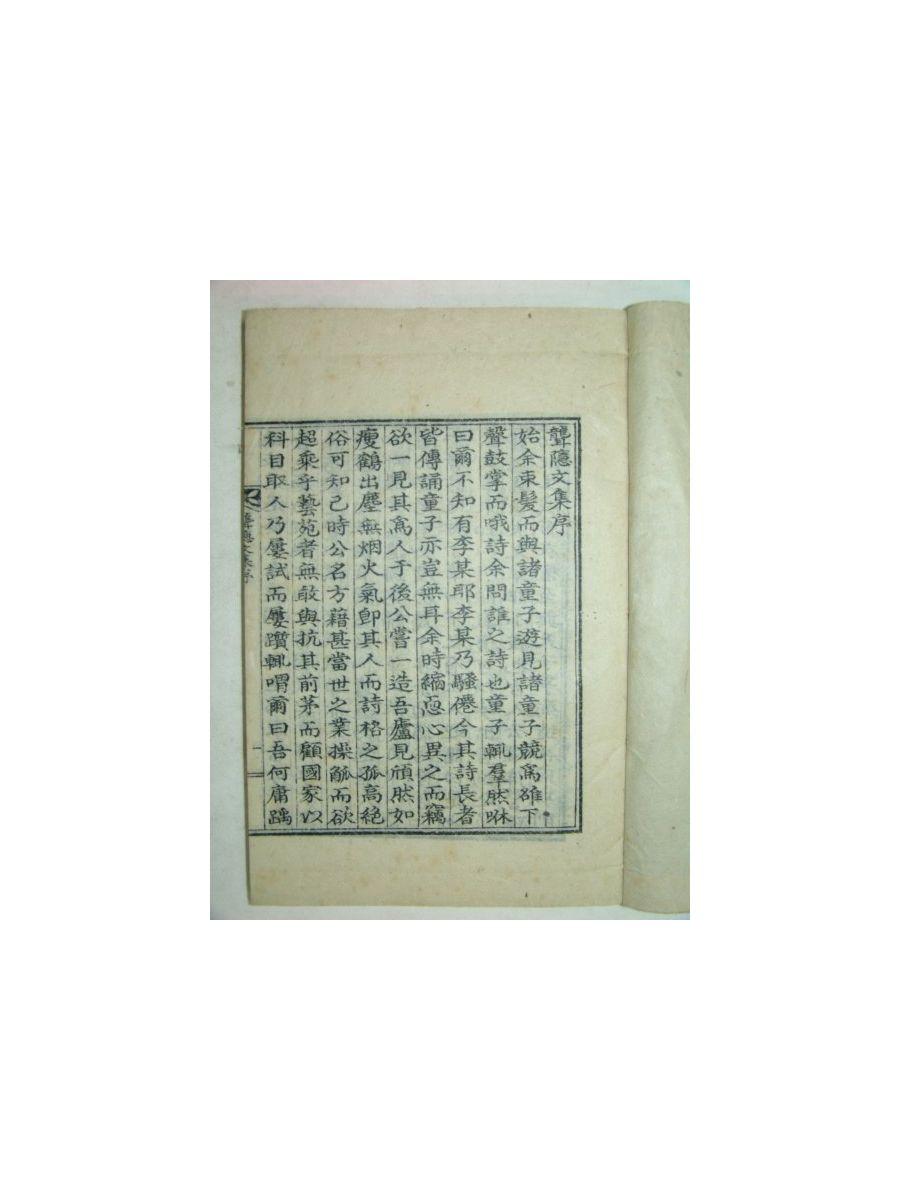 聾隱文集序
始余束髮而與諸童子遊見諸童子競爲雄下
聲鼓掌而哦詩余問誰之詩也童子輒羣然咻
曰爾不知有李某耶李某乃騷僊今其詩長者
皆傳誦童子亦豈無耳余時縮恧心異之而竊
欲一見其爲人于後公嘗一造吾廬見頎然如
瘦鶴出塵無烟火氣卽其人而詩格之孤高絕
俗可知已時公名方藉甚當世之業操觚而欲
超乘乎藝苑者無敢與抗其前茅而顧國家以
科目取人乃屢試而屢躓輒喟爾曰吾何庸踽
聾隱文集序
一